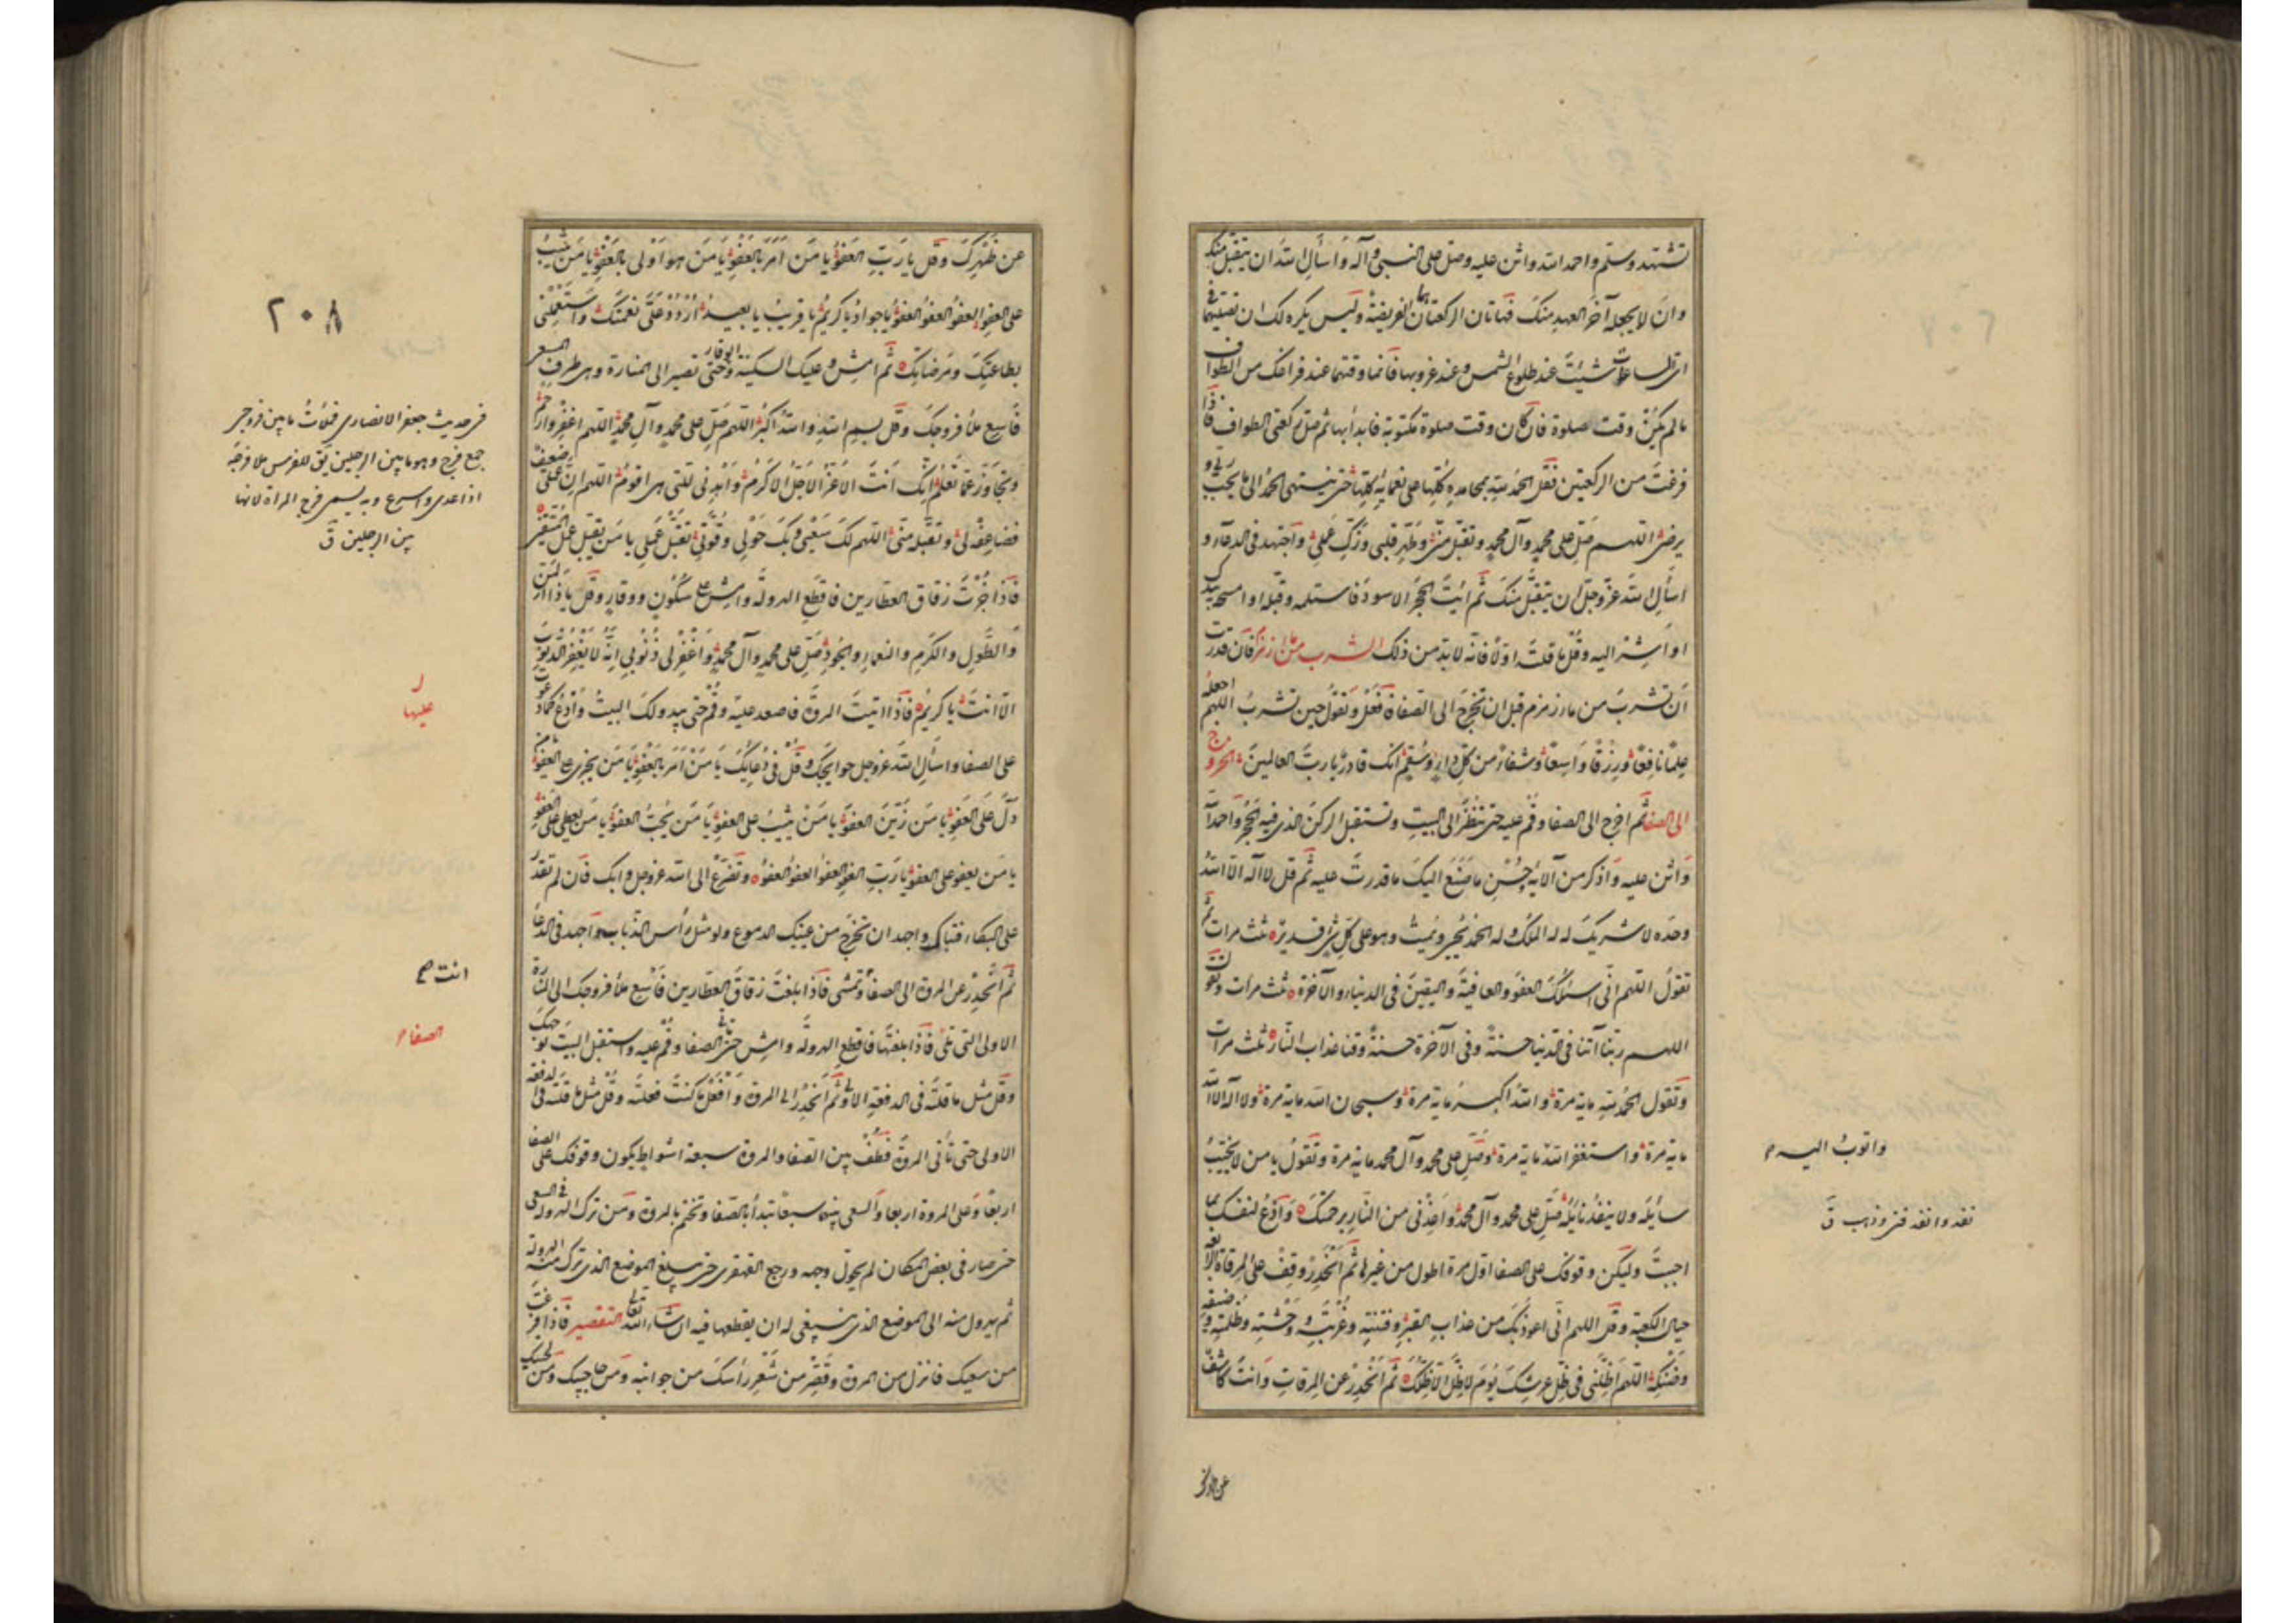 تشهد وسلم واحمد الله واثن عليه وصل على النبي وآله واسأل الله ان يتقبل منك
وان لا يجعله آخر العهد منك فهاتان الركعتان هما الفريضة وليس يكره لك ان تصليهما في
اى الساعات شئت عند طلوع الشمس وعند غروبها فانما وقتهما عند فراغك من الطواف
ما لم يكن وقت صلوة فان كان وقت صلوة مكتوبة فابدأ بها ثم صل ركعتى الطواف فاذا
فرغت من الركعتين فقل الحمد لله بمحامده كلها على نعمائه كلها حتى ينتهى الحمد الى ما يحب ربى و
يرضى اللهم صل على محمد وآل محمد وتقبل منى وطهر قلبى وزك عملى واجتهد فى الدعاء و
اسأل الله عز وجل ان يتقبل منك ثم ائت الحجر الاسود فاستلمه وقبله او امسحه بيدك
او اشر اليه وقل ما قلت اولا فانه لا بد من ذلك الشرب من ماء زمزم فان قدرت
ان تشرب من ماء زمزم قبل ان تخرج الى الصفا فافعل وتقول حين تشرب اللهم اجعله
علما نافعا ورزقا واسعا وشفاء من كل داء وسقم انك قادر يا رب العالمين الخروج
الى الصفا ثم اخرج الى الصفا وقم عليه حتى تنظر الى البيت وتستقبل الركن الذى فيه الحجر واحمد الله
واثن عليه واذكر من آلائه وحسن ما صنع اليك ما قدرت عليه ثم قل لا اله الا الله
وحده لا شريك له له الملك وله الحمد يحيى ويميت وهو على كل شئ قدير ثلث مرات ثم
تقول اللهم انى اسئلك العفو والعافية واليقين فى الدنيا والآخرة ثلث مرات وتقول
اللهم ربنا آتنا فى الدنيا حسنة وفى الآخرة حسنة وقنا عذاب النار ثلث مرات
وتقول الحمد لله ماية مرة والله اكبر ماية مرة وسبحان الله ماية مرة ولا اله الا الله
ماية مرة واستغفر الله ماية مرة وصل على محمد وآل محمد ماية مرة وتقول يا من لا يخيب
سائله ولا ينفد نائله صل على محمد وآل محمد واعذنى من النار برحمتك وادع لنفسك بما
احببت وليكن وقوفك على الصفا اول مرة اطول من غيرها ثم انحدر وقف على المرقاة الرابعة
حيال الكعبة وقل اللهم انى اعوذ بك من عذاب القبر وفتنته وغربته ووحشته وظلمته وضيقه
وضنكه اللهم اظلنى فى ظل عرشك يوم لا ظل الا ظلك ثم انحدر عن المرقات وانت كاشف
واتوب اليه م
نفد وانفد فنى وذهب ق
عن ظهرك
عن ظهرك وقل يا رب العفو يا من امر بالعفو يا من هو اولى بالعفو يا من يثيب
على العفو العفو العفو العفو يا جواد يا كريم يا قريب يا بعيد اردد على نعمتك واستعملنى
بطاعتك ومرضاتك ثم امش وعليك السكينة والوقار حتى تصير الى المنارة وهى طرف المسعى
فاسع ملأ فروجك وقل بسم الله والله اكبر اللهم صل على محمد وآل محمد اللهم اغفر وارحم
وتجاوز عما تعلم انك انت الاعز الاجل الاكرم واهدنى للتى هى اقوم اللهم ان عملى ضعيف
فضاعفه لى وتقبله منى اللهم لك سعيى وبك حولى وقوتى تقبل عملى يا من يقبل عمل المتقين
فاذا جزت زقاق العطارين فاقطع الهرولة وامش على سكون ووقار وقل يا ذا المن
والطول والكرم والنعماء والجود صل على محمد وآل محمد واغفر لى ذنوبى انه لا يغفر الذنوب
الا انت يا كريم فاذا اتيت المروة فاصعد عليه وقم حتى يبدو لك البيت وادع كما دعوت
على الصفا واسأل الله عز وجل حوايجك وقل فى دعائك يا من امر بالعفو يا من يجزى على العفو يا من
دل على العفو يا من زين العفو يا من يثيب على العفو يا من يحب العفو يا من يعطى على العفو
يا من يعفو على العفو يا رب العفو العفو العفو العفو وتضرع الى الله عز وجل وابك فان لم تقدر
على البكاء فتباك واجهد ان تخرج من عينيك الدموع ولو مثل رأس الذباب واجهد فى الدعاء
ثم انحدر عن المروة الى الصفا وتمشى فاذا بلغت زقاق العطارين فاسع ملأ فروجك الى المنارة
الاولى التى تلى فاذا بلغتها فاقطع الهرولة وامش حتى تأتى الصفا وقم عليه واستقبل البيت بوجهك
وقل مثل ما قلته فى الدفعة الاولى ثم انحدر الى المروة وافعل ما كنت فعلته وقل مثل ما قلته فى الدفعة
الاولى حتى تأتى المروة فطف بين الصفا والمروة سبعة اشواط يكون وقوفك على الصفا
اربعا وعلى المروة اربعا والسعى بينهما سبعا تبدأ بالصفا وتختم بالمروة ومن ترك الهرولة فى السعى
حتى صار فى بعض المكان لم يحول وجهه ورجع القهقرى حتى يبلغ الموضع الذى ترك منه الهرولة
ثم يهرول منه الى الموضع الذى ينبغى له ان يقطعها فيه ان شاء الله تعالى التقصير فاذا فرغت
من سعيك فانزل من المروة وقصر من شعر رأسك من جوانبه ومن حاجبيك ومن لحيتك
٢٠٨
فى حديث جعفر الانصارى فملأت ما بين فروجى
جمع فرج وهو ما بين الرجلين يق للفرس ملا فرجه
اذا عدى واسرع وبه يسمى فرج المراة لانها
بين الرجلين ق
عليها
انت صح
الصفا م